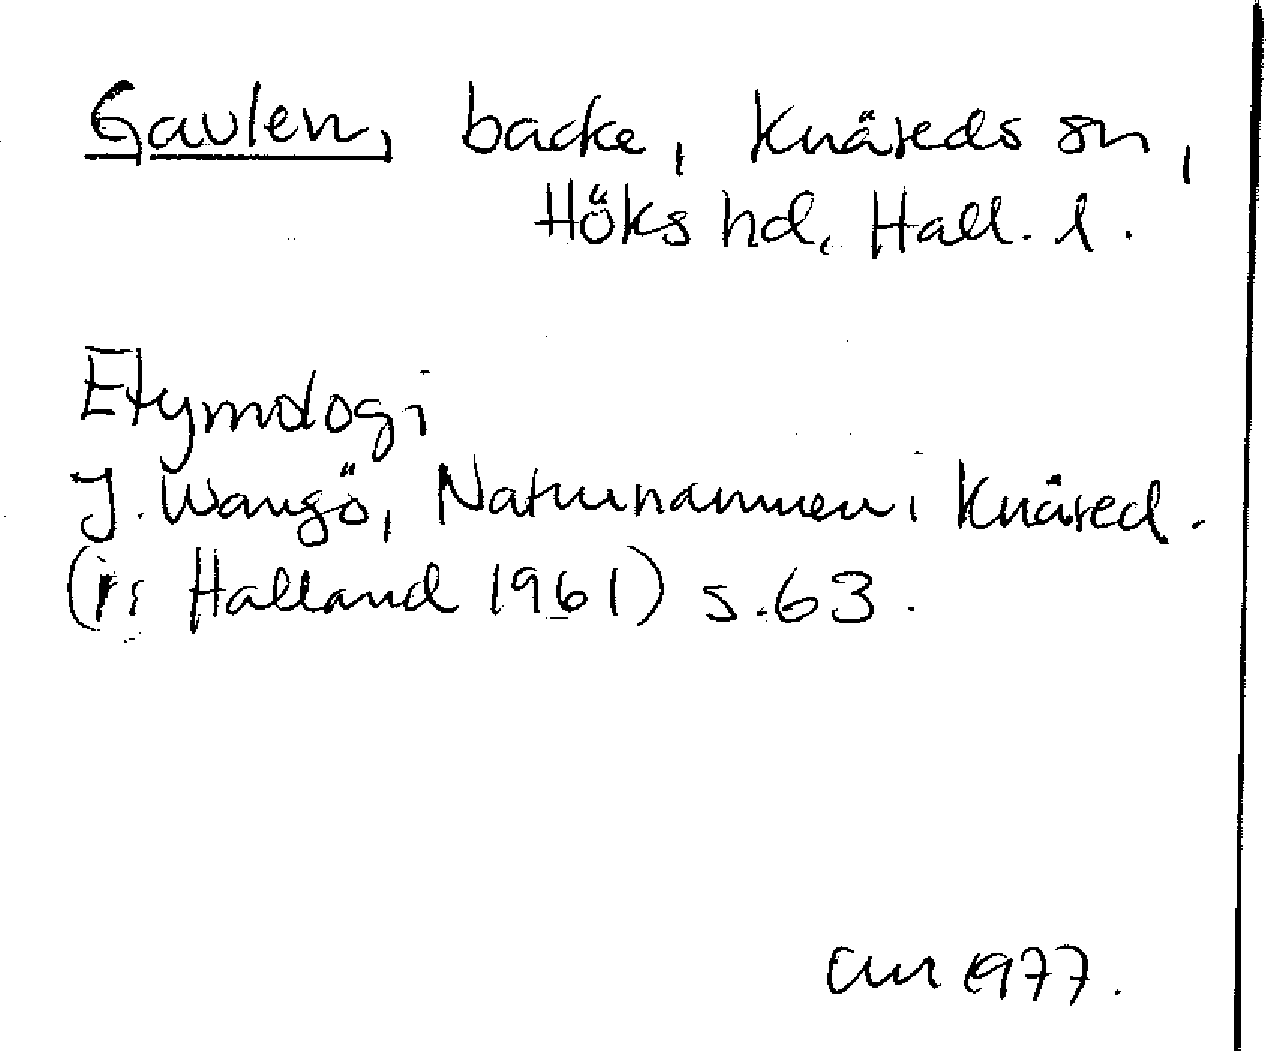 Gavlen, backe, Knäreds sn,
Höks hd, Hall. l.
Etymologi
J. Wangö, Naturnamnen i Knäred.
(i: Halland 1961) s.63.
1977.